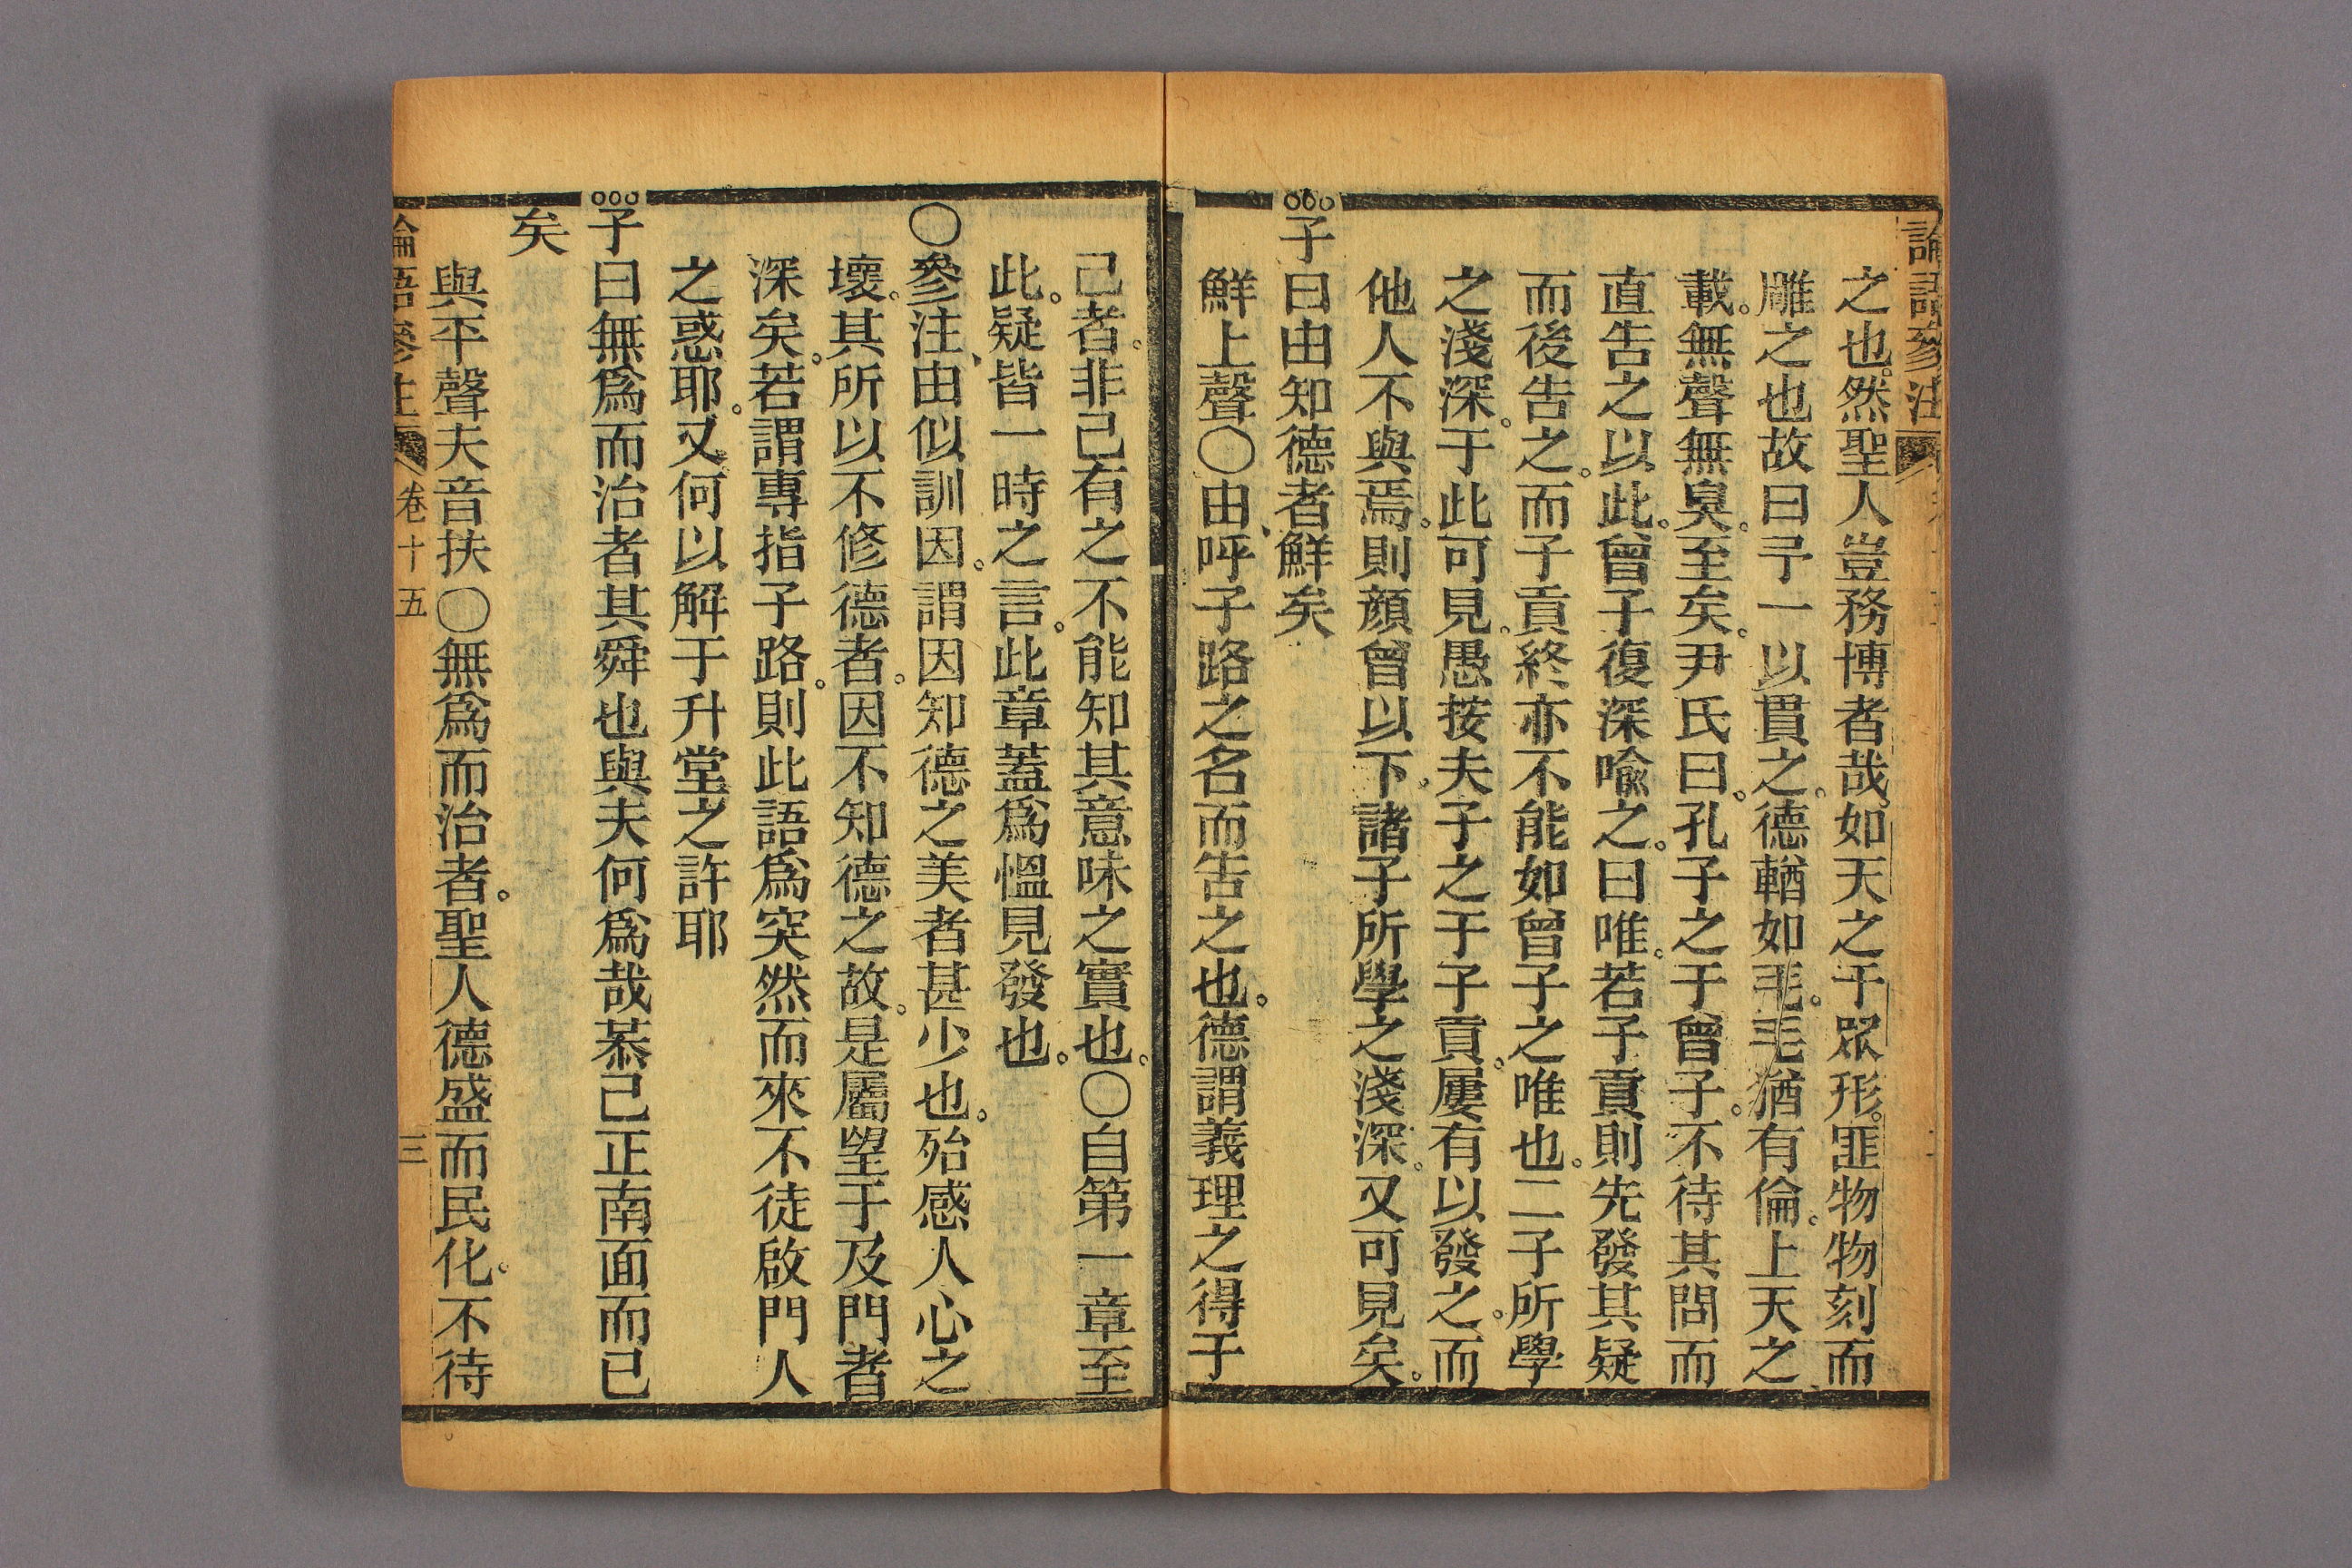 論語參注
之也然聖人豈務博者哉如天之于眾形匪物物刻而
雕之也故曰予一以貫之德輶如毛毛猶有倫上天之
載無聲無臭至矣尹氏曰孔子之于曾子不待其問而
直告之以此曾子復深喻之曰唯若子貢則先發其疑
而後告之而子貢終亦不能如曾子之唯也二子所學
之淺深于此可見愚按夫子之于子貢屢有以發之而
他人不與焉則顔曾以下諸子所學之淺深又可見矣
子曰由知德者鮮矣
鮮上聲〇由呼子路之名而告之也德謂義理之得于
己者非己有之不能知其意味之實也〇自第一章至
此疑皆一時之言此章蓋爲慍見發也
〇參注由似訓因謂因知德之美者甚少也殆感人心之
壞其所以不修德者因不知德之故是屬望于及門者
深矣若謂專指子路則此語爲突然而來不徒啟門人
之惑耶又何以解于升堂之許耶
子曰無爲而治者其舜也與夫何爲哉恭己正南面而已
矣
與平聲夫音扶〇無爲而治者聖人德盛而民化不待
論語參注 卷十五 三